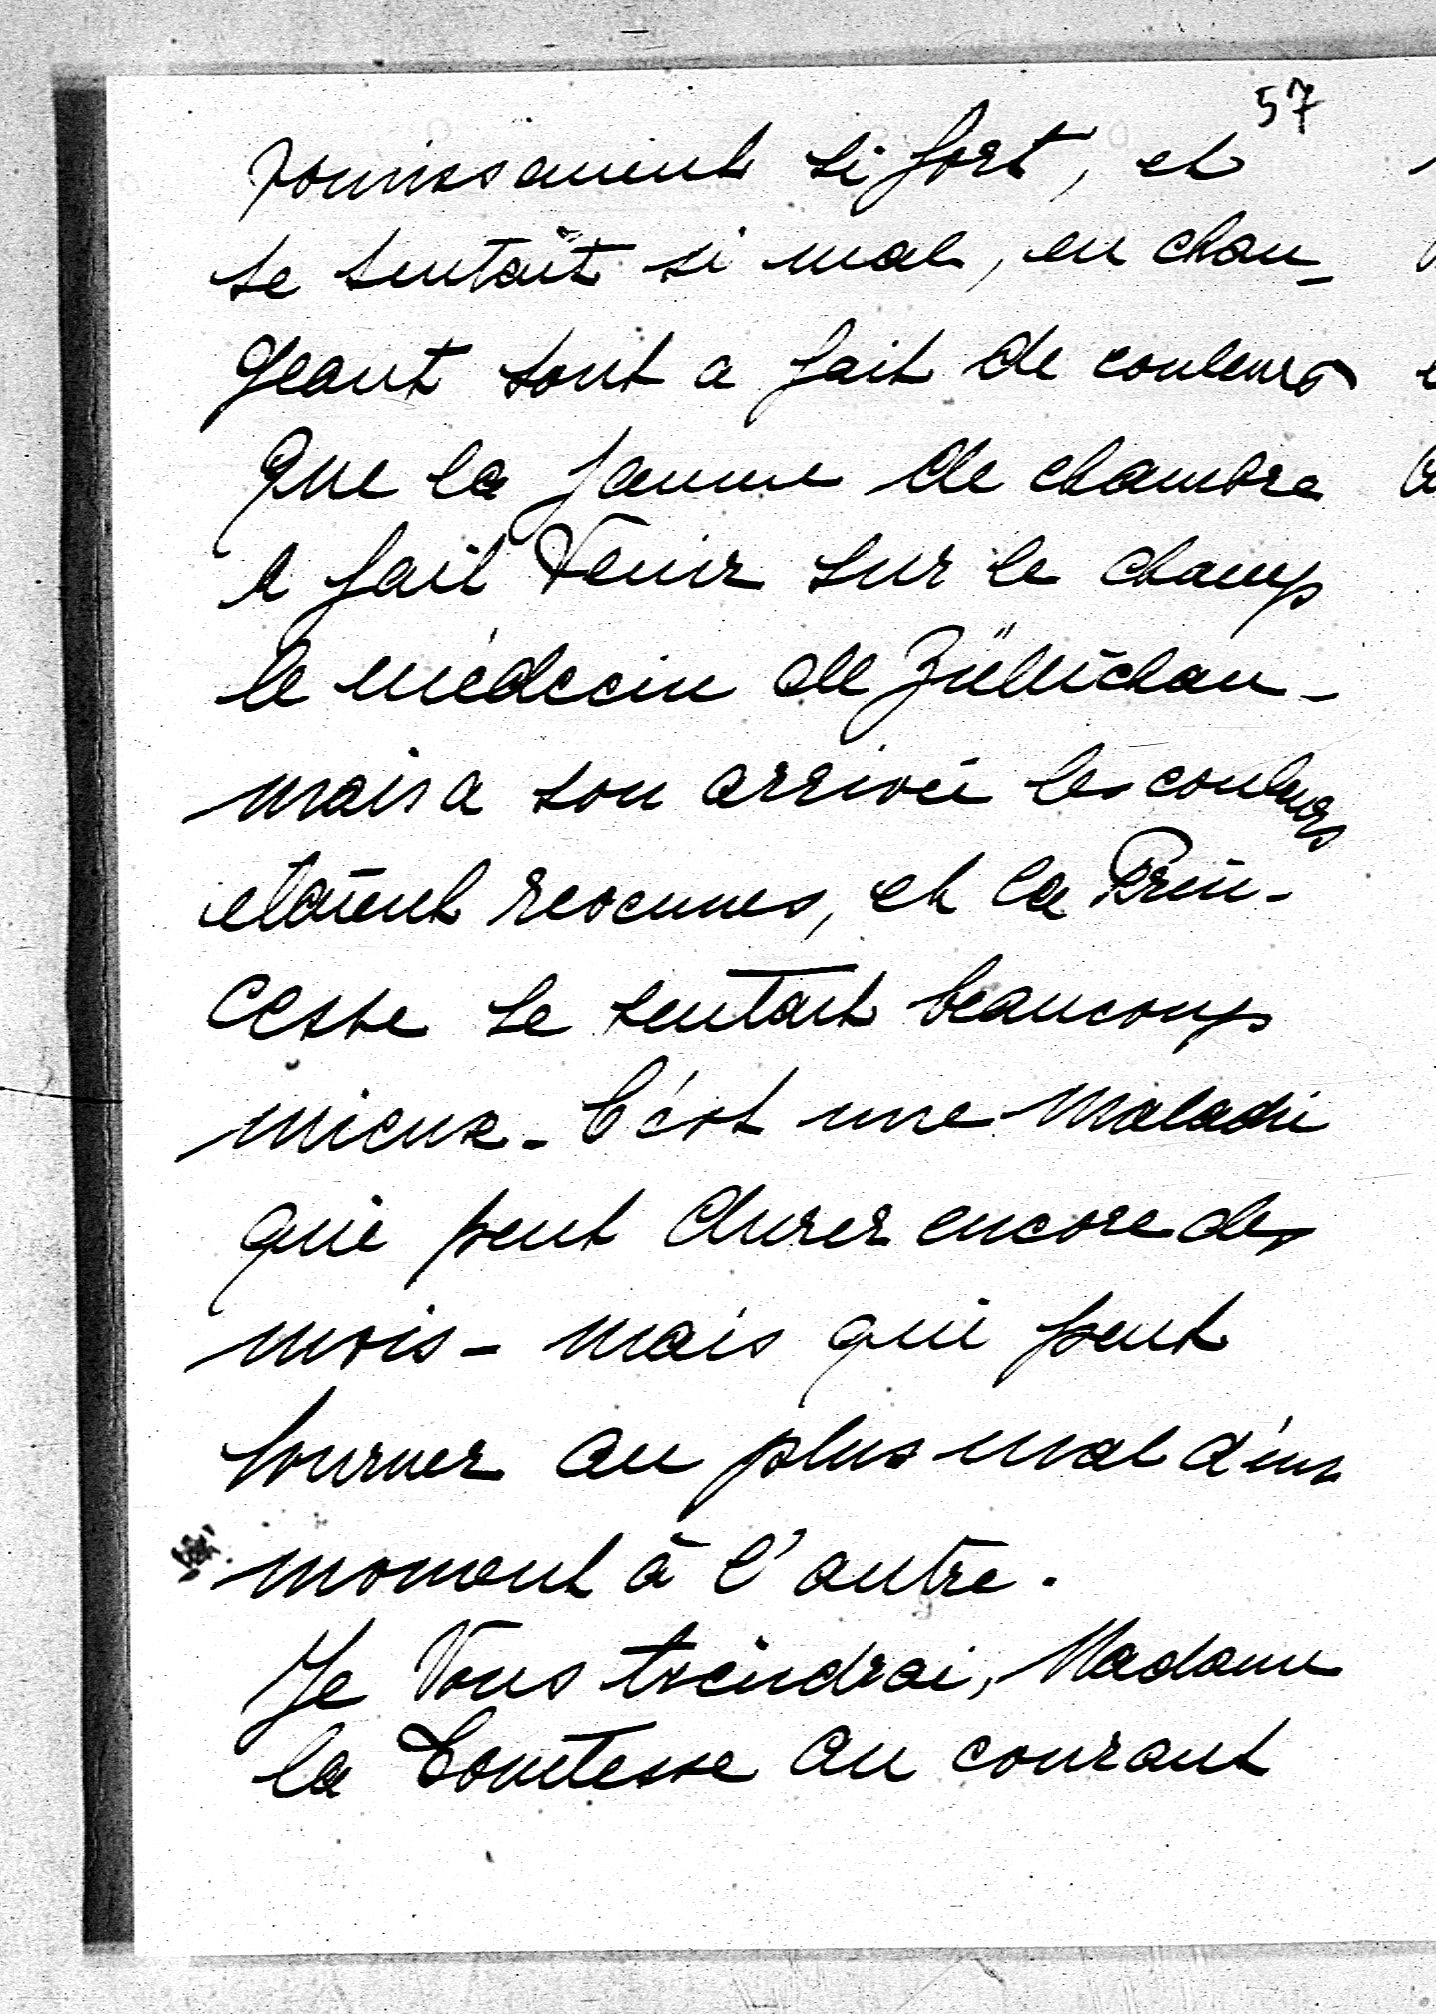 57
vomissement si fort, et
se sentait si mal, en chan-
geant tout a fait de couleurs
que la famme de chambre
a fait venir sur le champ
le médecin de Züllichau -
mais a son arrivée les couleurs
etaient revenues, et la Prin-
cesse se sentait beaucoup
mieux - C'est une maladie
qui peut durer encore des
mois - mais qui peut
tourner au plus mal d'un
moment à l'autre.
Je Vous tiendrai, Madame
la Comtesse au courant